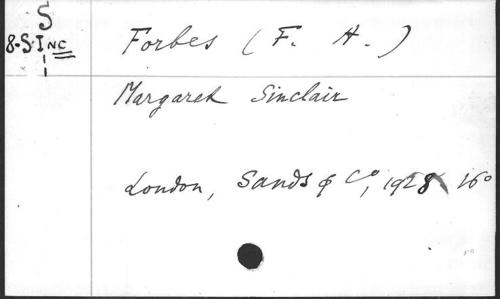 S
8-SINC
Forbes (F. H.)
Margaret Sinclair
London, Sands & Co, 1928 16o